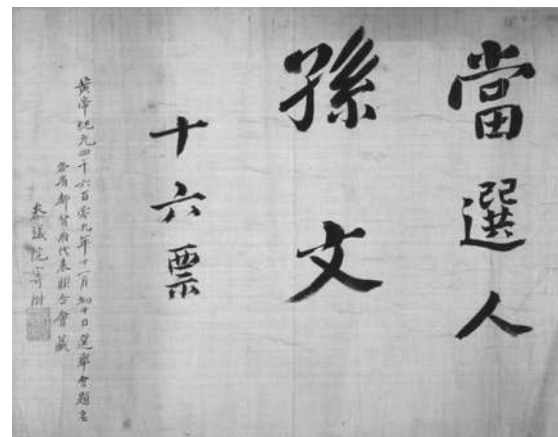 當選人
孫文
十六票
黃帝紀元四千六百零九年十一月初十日選舉會題名
各省都督府代表聯合會藏
參議院寄附